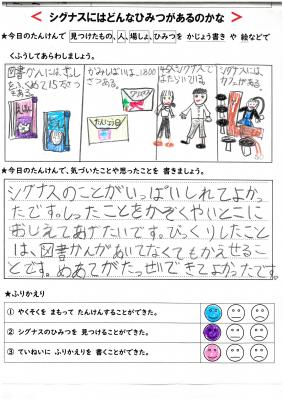 ＜ シグナスにはどんなひみつがあるのかな ＞
★今日のたんけんで 見つけたもの、人、場しょ、ひみつを かじょう書き や 絵などで
くふうしてあらわしましょう。
図書かんには、むし
をふくめて15万さつ
もある。
かみしばいは、1800
さつある。
45人シグナスで
はたらいている。
シグナスには、
カフェがある。
★今日のたんけんで、気づいたことや思ったことを 書きましょう。
シグナスのことがいっぱいしれてよかっ
たです。しったことをかぞくやいとこに
おしえてあげたいです。びっくりしたこと
は、図書かんがあいてなくてもかえせるこ
とです。めあてがたっせいできてよかったです。
★ふりかえり
① やくそくを まもって たんけんすることができた。
② シグナスのひみつを 見つけることができた。
③ ていねいに ふりかえりを 書くことができた。